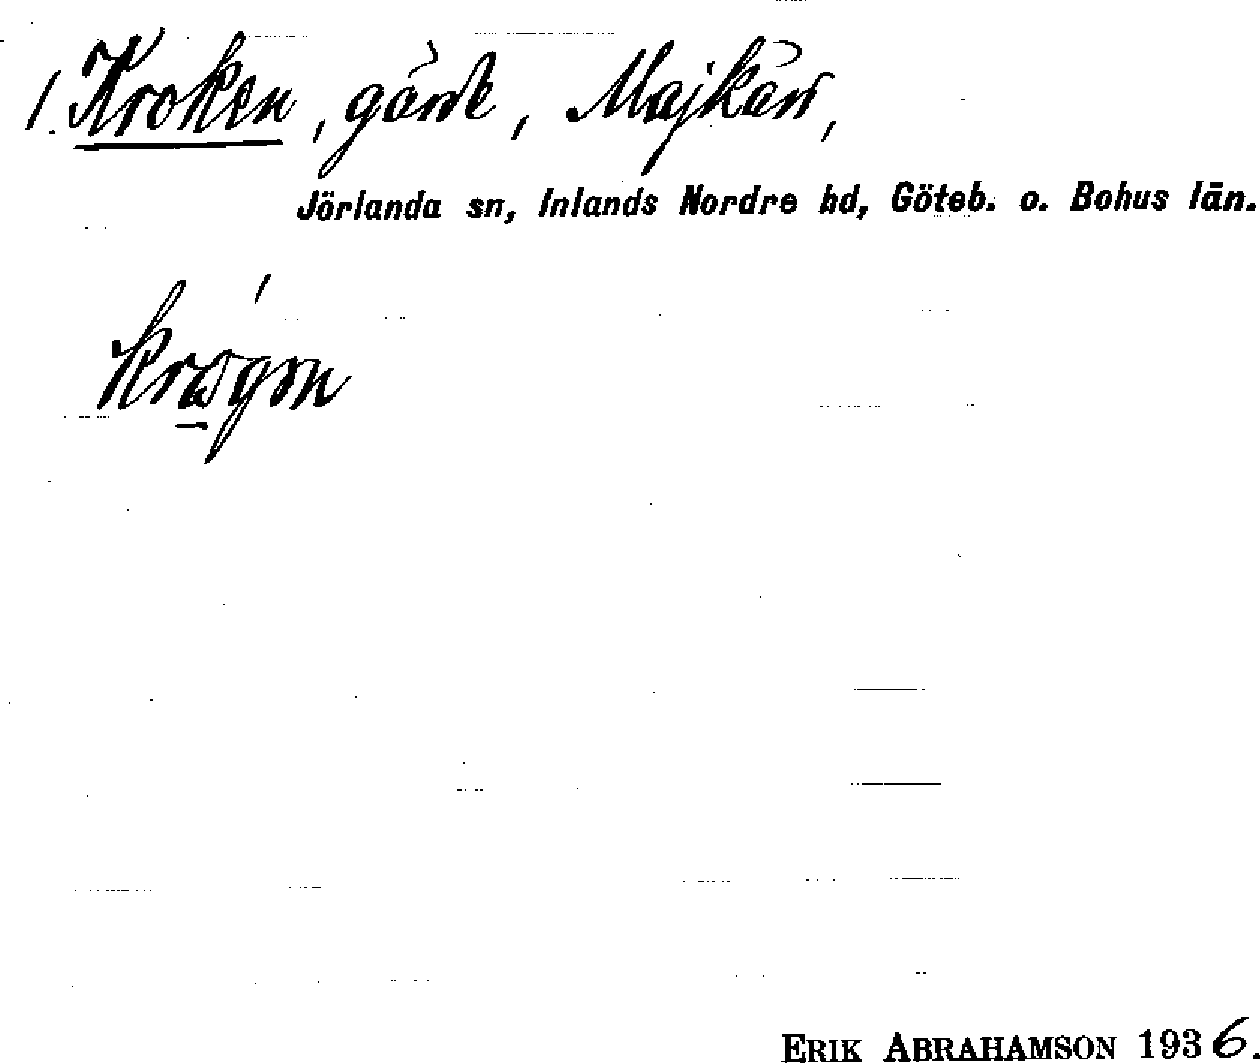 1. Kroken, gärde, Majkärr,
Jörlanda sn, Inlands Nordre hd, Göteb. o. Bohus län.
ERIK ABRAHAMSON 1936.